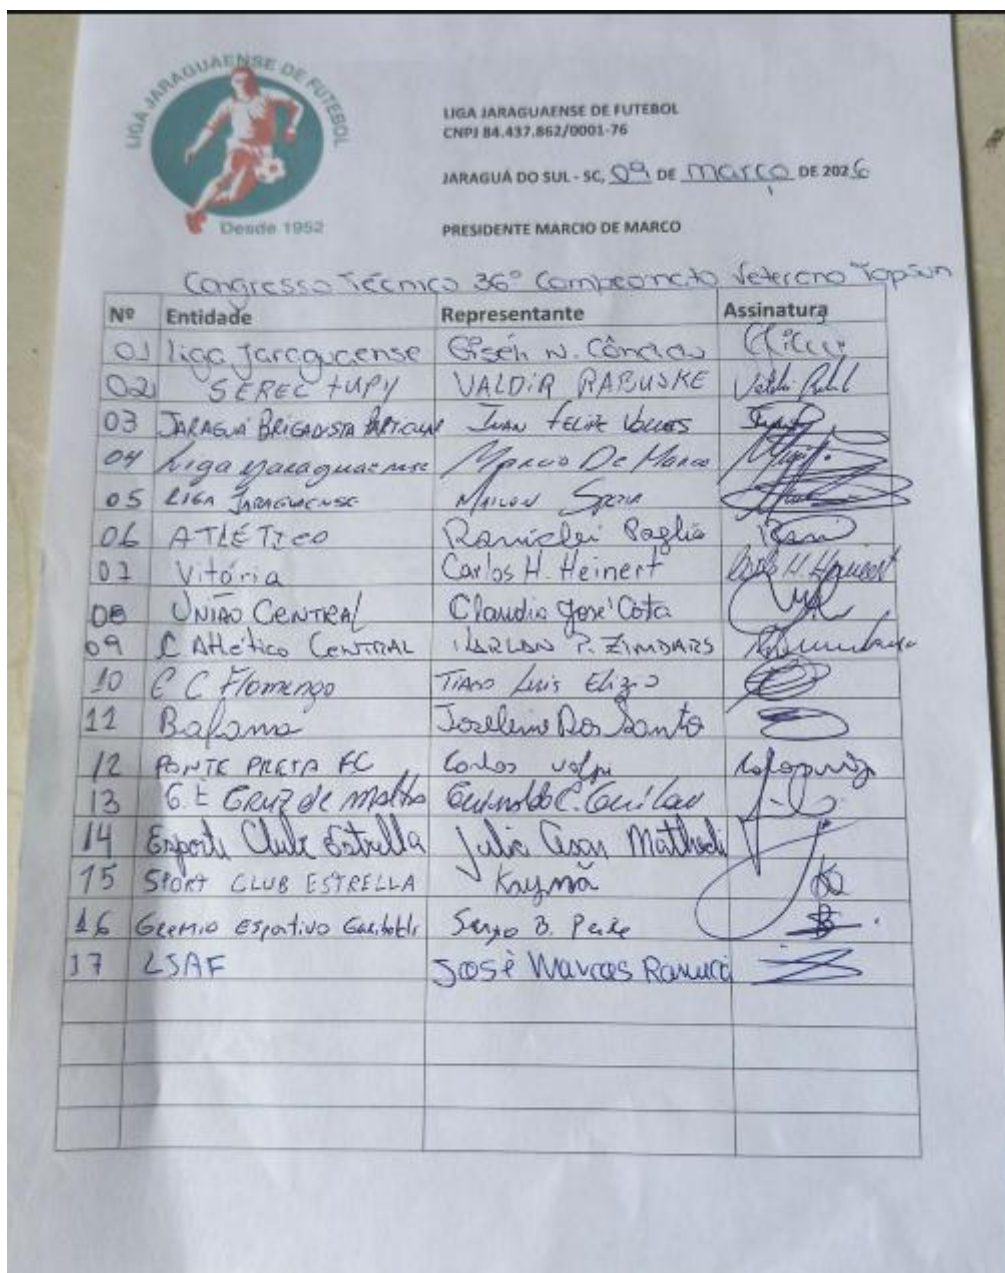 LIGA JARAGUAENSE DE FUTEBOL
Desde 1952
LIGA JARAGUAENSE DE FUTEBOL
CNPJ 84.437.862/0001-76
JARAGUÁ DO SUL - SC, 09 DE março DE 2026
PRESIDENTE MARCIO DE MARCO
Congresso Técnico 36º Campeonato Veterano Topsun
Nº Entidade Representante Assinatura
01 Liga Jaraguaense N.
02 SEREC TUPY VALDIR RABUSKE
03 JARAGUÁ BRIGADISTA JUAN FELIPE
04 Liga Jaraguaense Marcio De Marco
05 LIGA JARAGUAENSE
06 ATLÉTICO Raniclei Paglia Rani
07 Vitória Carlos H. Heinert Carlos H. Heinert
08 UNIÃO CENTRAL Claudio José Costa
09 C Atlético CENTRAL HARLAN P. ZIMDARS
10 C C Flamengo TIAGO Luis Elizio
11 Bafama Joselino Dos Santo
12 PONTE PRETA FC Carlos Volpi
13 G. E Cruz de Malta
14 Esporte Clube Estrella Julio Cesar
15 SPORT CLUB ESTRELLA Kaynã
16 Gremio Esportivo Garibaldi Sergio B.
17 LSAF José Marcos